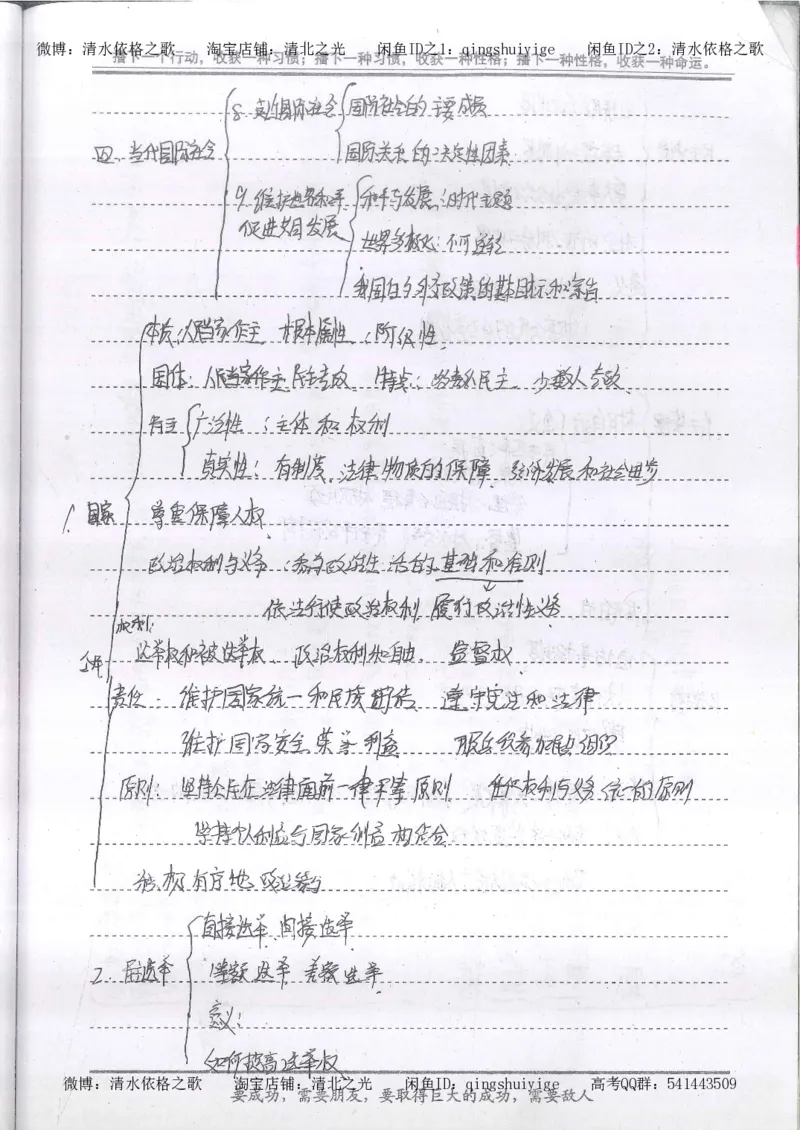 微博：清水依格之歌 淘宝店铺：清北之光 闲鱼ID之1：qingshuiyige 闲鱼ID之2：清水依格之歌
播下一个行动，收获一种习惯；播下一种习惯，收获一种性格；播下一种性格，收获一种命运。
8. 走近国际社会 国际社会的主要成员
四 当代国际社会 国际关系的决定性因素
9. 维护世界和平 和平与发展：时代主题
促进共同发展
世界多极化：不可逆转
我国的外交政策的基本目标和宗旨
本质：人民当家作主 根本属性：阶级性
国体：人民当家作主 民主专政 特点：多数人民主 少数人专政
民主 广泛性：主体和权利
真实性：有制度、法律、物质的保障 经济发展和社会进步
1. 国家 尊重保障人权
政治权利与义务：参与政治生活的基础和准则
依法行使政治权利 履行政治性义务
权利：
公民 选举权和被选举权 政治权利和自由 监督权
责任：维护国家统一和民族团结 遵守宪法和法律
维护国家安全荣誉利益 服兵役参加民兵组织
原则：坚持公民在法律面前一律平等原则 坚持权利与义务统一的原则
坚持个人利益与国家利益相结合
积极有序地政治参与
直接选举 间接选举
2. 民主选举 等额选举 差额选举
意义：
如何提高选举权
微博：清水依格之歌 淘宝店铺：清北之光 闲鱼ID：qingshuiyige 高考QQ群：541443509
要成功，需要朋友，要取得巨大的成功，需要敌人